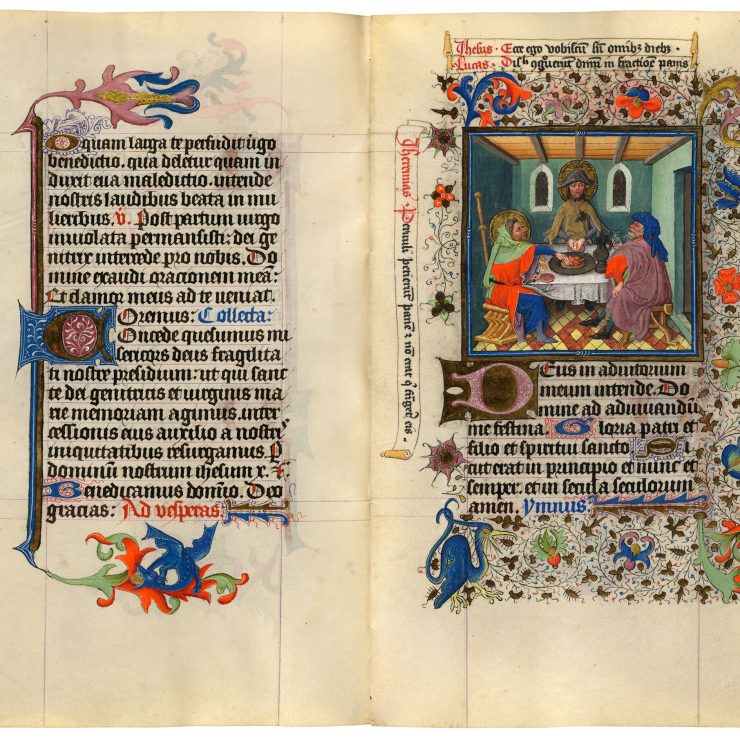 O quam larga te perfudit v̾go
benedictio. quia deletur quam in
duxit eua maledictio. intende
nostris laudibus beata in mu
lieribus. V̄. Post partum uirgo
inuiolata permansisti: dei ge
nitrix intercede pro nobis. Do
mine exaudi orationem meā:
Et clamor meus ad te ueniat.
Oremus: Collecta:
Concede quesumus mi
sericors deus fragilita
ti nostre presidium: ut qui sanc
te dei genitricis et uirginis ma
rie memoriam agimus. inter
cessionis eius auxilio a nostris
iniquitatibus resurgamus. P
dominū nostrum ihesum x.
Benedicamus domino. Deo
gracias: Ad vesperas:
Ihesus · Ecce ego vobiscū sū omibꝫ diebꝫ ·
Lucas · dn̄m in fractione panis
Iheremias · Parvuli petierunt panē ⁊ nō erat q̇ eis ·
Deus in adiutorium
meum intende. Do
mine ad adiuuandū
me festina. Gloria patri et
filio et spiritui sancto. Si
cut erat in principio et nunc et
semper. et in secula seculorum
amen. Ymnus: